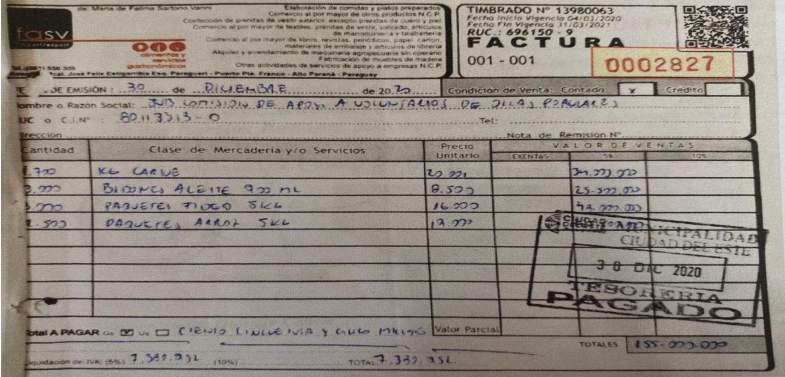 de: María de Fatima Sartorio Vanni
Elaboración de comidas y platos preparados
Comercio al por mayor de otros productos N.C.P.
Confección de prendas de vestir exterior, excepto prendas de cuero y piel
Comercio al por mayor de textiles, prendas de vestir, calzado, artículos
de marroquinería y talabartería
Comercio al por mayor de libros, revistas, periódicos, papel, cartón,
materiales de embalaje y artículos de librería
Alquiler y arrendamiento de maquinaria agropecuaria sin operario
Fabricación de muebles de madera
Otras actividades de servicios de apoyo a empresas N.C.P.
fasv
import/export
alimentos y
servicios
gastronómicos
José Felix Estigarribia Esq. Paraguarí - Puerto Pte. Franco - Alto Paraná - Paraguay
TIMBRADO Nº 13980063
Fecha Inicio Vigencia 04/03/2020
Fecha Fin Vigencia 31/03/2021
RUC.: 696150 - 9
FACTURA
001 - 001
0002827
DE EMISIÓN: 30 de DICIEMBRE de 2020 Condición de Venta: Contado x Crédito
ombre o Razón Social: COMISION DE APOYO A VOLUNTARIOS DE OLLAS POPULARES
UC o C.I.Nº 80113313-0 Tel:
irección Nota de Remisión Nº
Cantidad Clase de Mercadería y/o Servicios Precio Unitario VALOR DE VENTAS
EXENTAS 5% 10%
.700 KG CARNE 20.000 34.000.000
3.000 BIDONES ACEITE 900 ML 8.500 25.500.000
3.000 PAQUETES FIDEO 5KG 16.000 48.000.000
2.500 PAQUETES ARROZ 5KG 19.000
MUNICIPALIDAD
CIUDAD DEL ESTE
30 DIC 2020
TESORERIA
PAGADO
Total A PAGAR Gs U$ CIENTO CINCUENTA Y CINCO MILLONES Valor Parcial
TOTALES 155.000.000
Liquidación del IVA: (5%) 7.380.952 (10%) TOTAL 7.380.952